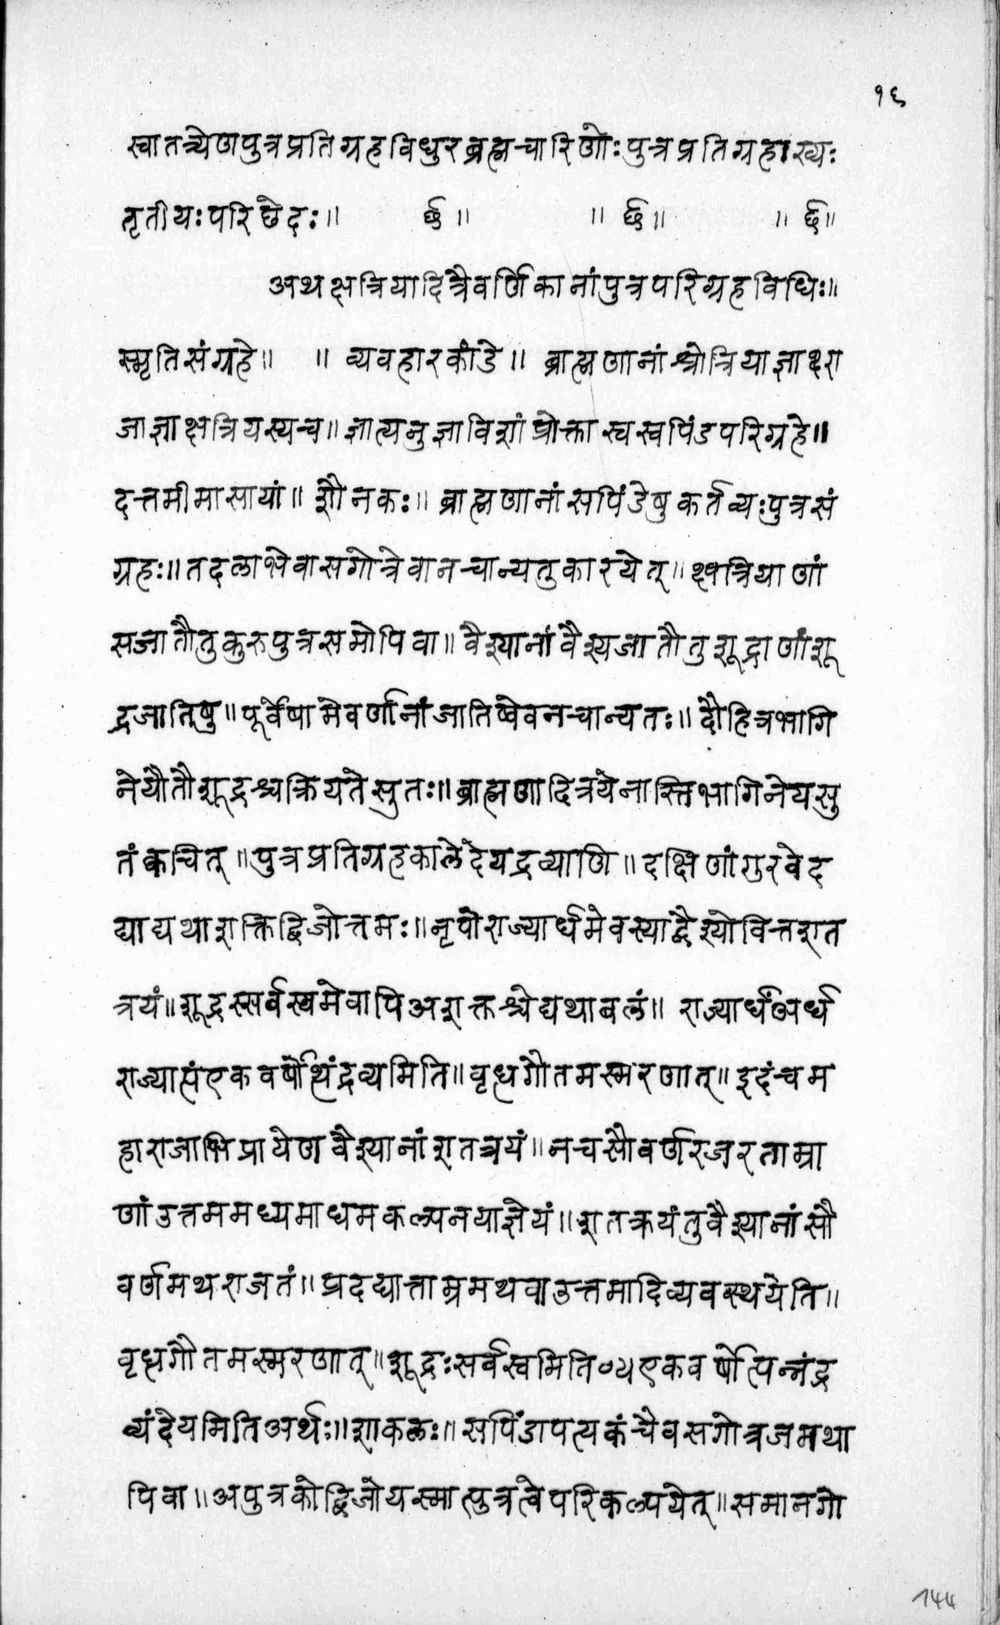 १६
स्वातन्त्र्येणपुत्रप्रतिग्रहविधुरब्रह्मचारिणोःपुत्रप्रतिग्रहाख्यः
तृतीयःपरिछेदः॥ छ॥ ॥छ॥ ॥छ॥
अथक्षत्रियादित्रैवर्णिकानांपुत्रपरिग्रहविधिः॥
स्मृतिसंग्रहे॥ ॥व्यवहारकांडे॥ ब्राह्मणानांश्रोत्रियाज्ञाक्ष्रा
जाज्ञाक्षत्रियस्यच॥ज्ञात्यनुज्ञाविशांप्रोक्तास्वस्वपिंडपरिग्रहे॥
दत्तमीमासायां॥शौनकः॥ब्राह्मणानांसपिंडेषुकर्तव्यःपुत्रसं
ग्रहः॥तदलाभेवासगोत्रेवानचान्यतुकारयेत्॥क्षत्रियाणां
सजातौतुकुरुपुत्रसमोपिवा॥वैश्यानांवैश्यजातौतुशूद्राणांशू
द्रजातिषु॥पूर्वेषामेवर्णानांजातिष्वेवनचान्यतः॥दौहित्रभागि
नेयौतौशूद्रश्चक्रियतेसुतः॥ब्राह्मणादित्रयेनास्तिभागिनेयसु
तंकचित्॥पुत्रप्रतिग्रहकालेदेयद्रव्याणि॥दक्षिणांगुरवेद
द्याद्यथाशक्तिद्विजोत्तमः॥नृपोराज्यार्धमेवस्याद्वैश्योवित्तशत
त्रयं॥शूद्रस्सर्वस्वमेवापिअशक्तश्चेद्यथाबलं॥ राज्यार्धंअर्ध
राज्यात्पंएकवर्षोत्थिंद्रव्यमिति॥वृधगौतमस्मरणात्॥इदंचम
हाराजाभिप्रायेणवैश्यानांशतत्रयं॥नचसौवर्णरजरताम्रा
णांउत्तममध्यमाधमकल्पनयाज्ञेयं॥शतत्रयंतुवैश्यानांसौ
वर्णमथराजतं॥प्रदद्यात्ताम्रमथवाउत्तमादिव्यवस्थयेति॥
वृधगौतमस्मरणात्॥शूद्रःसर्वस्वमिति०यएकवर्षोत्पिन्नंद्र
व्यंदेयमितिअर्थः॥शाकलः॥सपिंडापत्यकंचैवसगोत्रजमथा
पिवा॥अपुत्रकोद्विजोयस्मात्पुत्रत्वेपरिकल्पयेत्॥समानगो
144